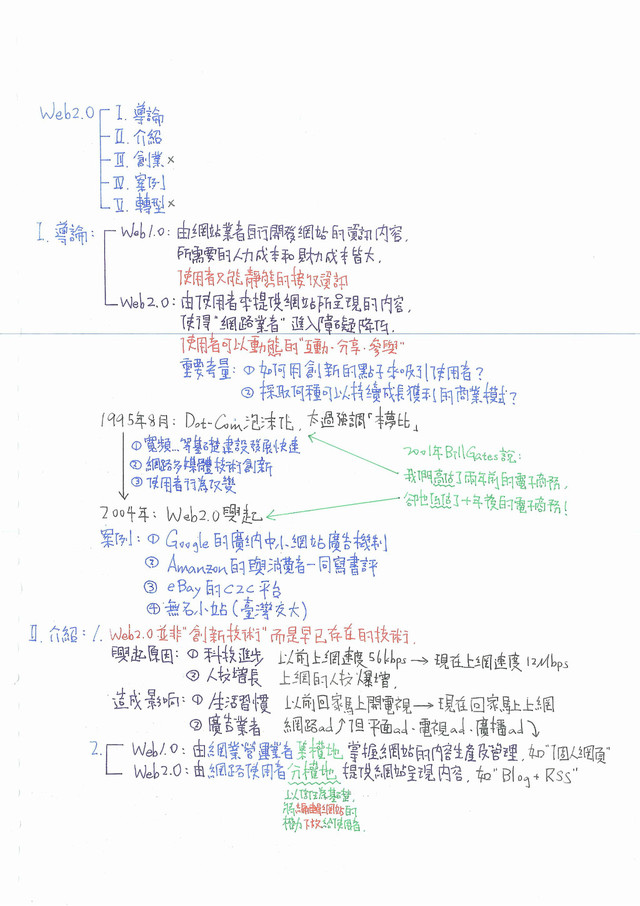 Web2.0
I. 導論
II. 介紹
III. 創業×
IV. 案例
V. 轉型×
I. 導論:
Web1.0: 由網站業者自行開發網站的資訊內容,
所需要的人力成本和財力成本皆大,
使用者只能靜態的接收資訊
Web2.0: 由使用者來提供網站所呈現的內容,
使得"網路業者"進入障礙降低,
使用者可以動態的"互動·分享·參與"
重要考量: ① 如何用創新的點子來吸引使用者?
② 採取何種可以持續成長獲利的商業模式?
1995年8月: Dot-Com泡沫化, 太過強調「本夢比」
① 寬頻...等基礎建設發展快速
② 網路多媒體技術創新
③ 使用者行為改變
2001年Bill Gates說:
我們高估了兩年前的電子商務,
卻也低估了十年後的電子商務!
2004年: Web2.0興起
案例: ① Google的廣納中小網站廣告機制
② Amanzon的與消費者一同寫書評
③ eBay的C2C平台
④ 無名小站(臺灣交大)
II. 介紹: 1. Web2.0並非"創新技術"而是早已存在的技術.
興起原因: ① 科技進步 以前上網速度56kbps → 現在上網速度12Mbps
② 人數增長 上網的人數爆增,
造成影响: ① 生活習慣 以前回家馬上開電視 → 現在回家馬上上網
② 廣告業者 網路ad↑但平面ad·電視ad·廣播ad↓
2. Web1.0: 由網業營運業者集權地 掌握網站的內容生產及管理, 如"個人網頁"
Web2.0: 由網路使用者分權地 提供網站呈現內容, 如"Blog+RSS"
將編輯網站的
權力下放給使用者.